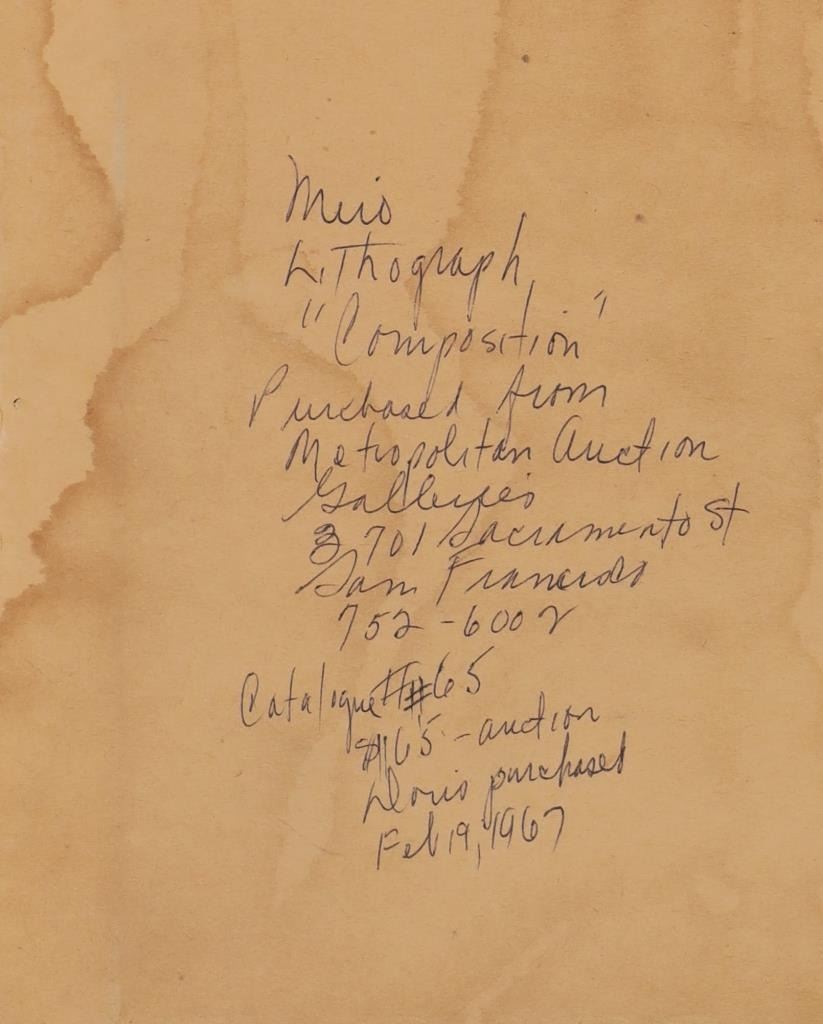 Miro
Lithograph
"Composition"
Purchased from
Metropolitan Auction
Galleries
3701 Sacramento St
San Francisco
752-6002
Catalogue # 65
$165 - auction
Doris purchased
Feb 19, 1967